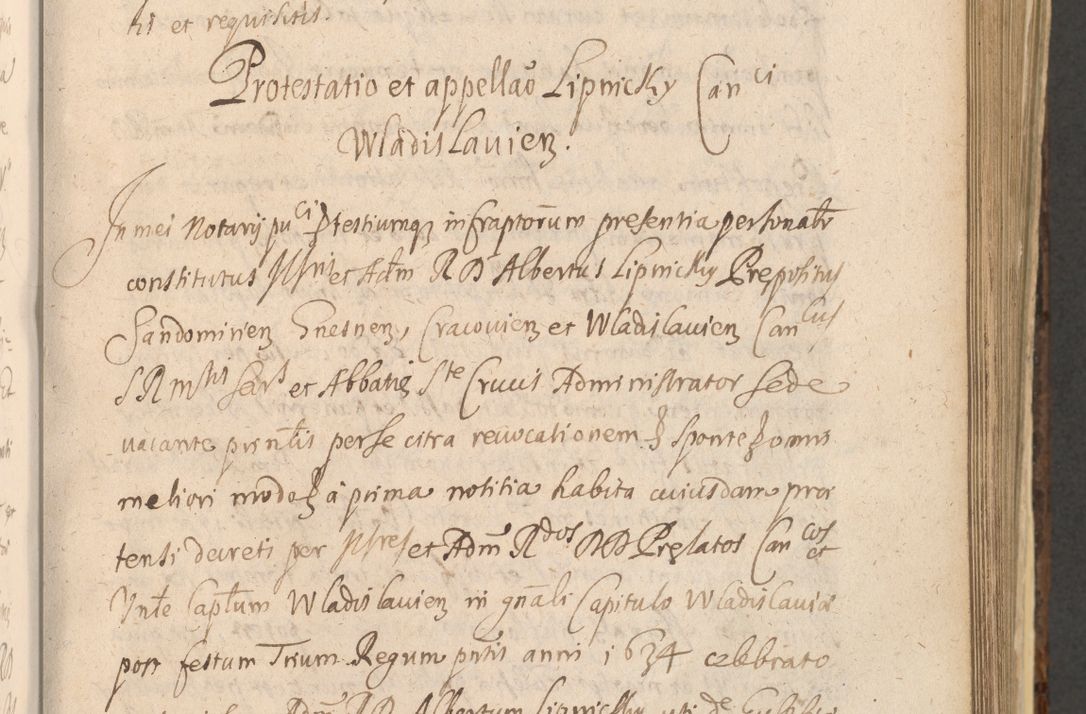 ti et requisitis.
Protestatio et appellaõ Lipnicky Canci
Wladislavien.
In mei Notarij puci testiumq infraptorum presentia personalr
constitutus Illris et Adm R D Albertus Lipnicky Prepositus
Sandomirien Gnesnen, Cracovien et Wladislavien Cancus
S R Mtis Secrs et Abbatię Ste Crucis Administrator sede
vacante per se citra revocationem sponte omni
meliori modo à prima notitia habita cuiusdam prae
tensi decreti per Illres et Adm Rdos DD Prelatos Cancos et
Capturm Wladislavien in gnali Capitulo Wladislaviae
post festum Trium Regum pntis anni 1634 celebrato
Adm RD Albertum Lipnicky uti de